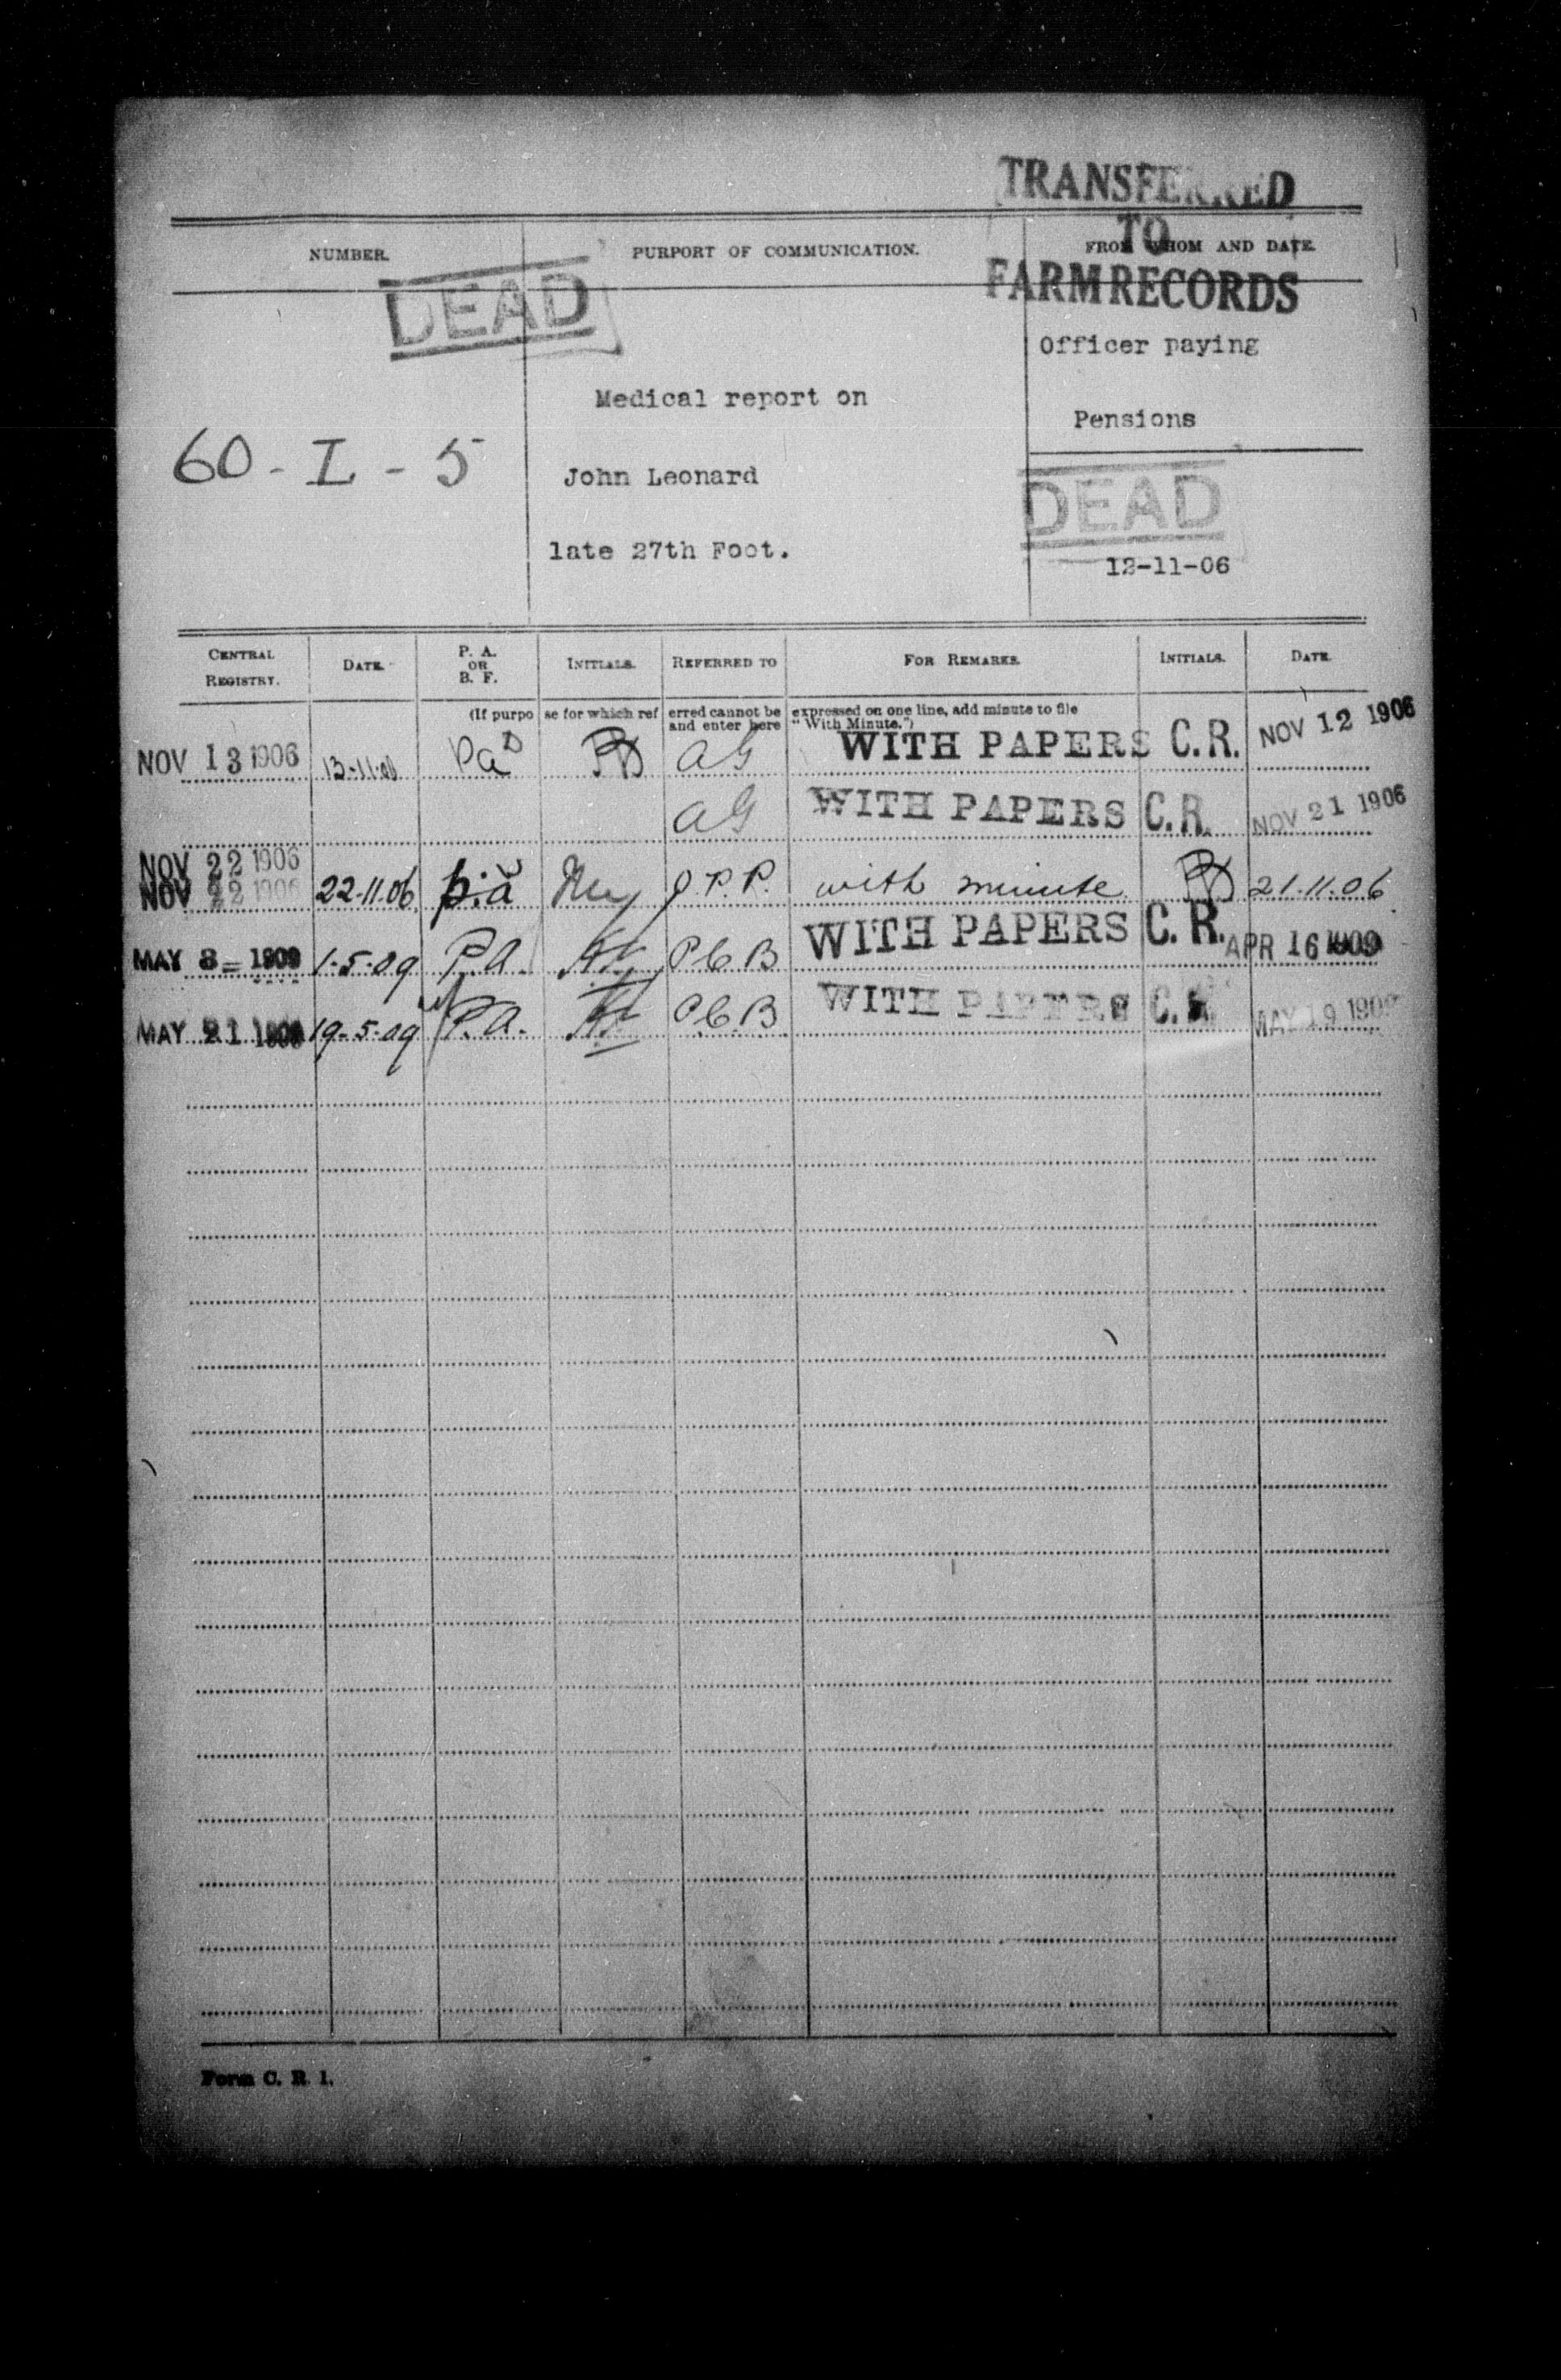 TRANSFERRED
TO
FARM RECORDS
NUMBER.
PURPORT OF COMMUNICATION.
FROM WHOM AND DATE.
DEAD
Officer paying
Medical report on
Pensions
60-L-5
John Leonard
DEAD
late 27th Foot.
12-11-06
CENTRAL REGISTRY. DATE. P. A. OR B. F. INITIALS. REFERRED TO FOR REMARKS. INITIALS. DATE.
(If purpose for which referred cannot be expressed on one line, add minute to file
and enter here "With Minute.")
NOV 13 1906 13-11-06 Pa AG WITH PAPERS C.R. NOV 12 1906
AG WITH PAPERS C.R. NOV 21 1906
NOV 22 1906
NOV 22 1906 22-11-06 p.a J.P.P. with minute 21.11.06
MAY 3- 1909 1-5-09 P.A. P.C.B WITH PAPERS C.R. APR 16 1909
MAY 21 1909 19-5-09 P.A. P.C.B WITH PAPERS C.R. MAY 19 1909
Form C. R. 1.